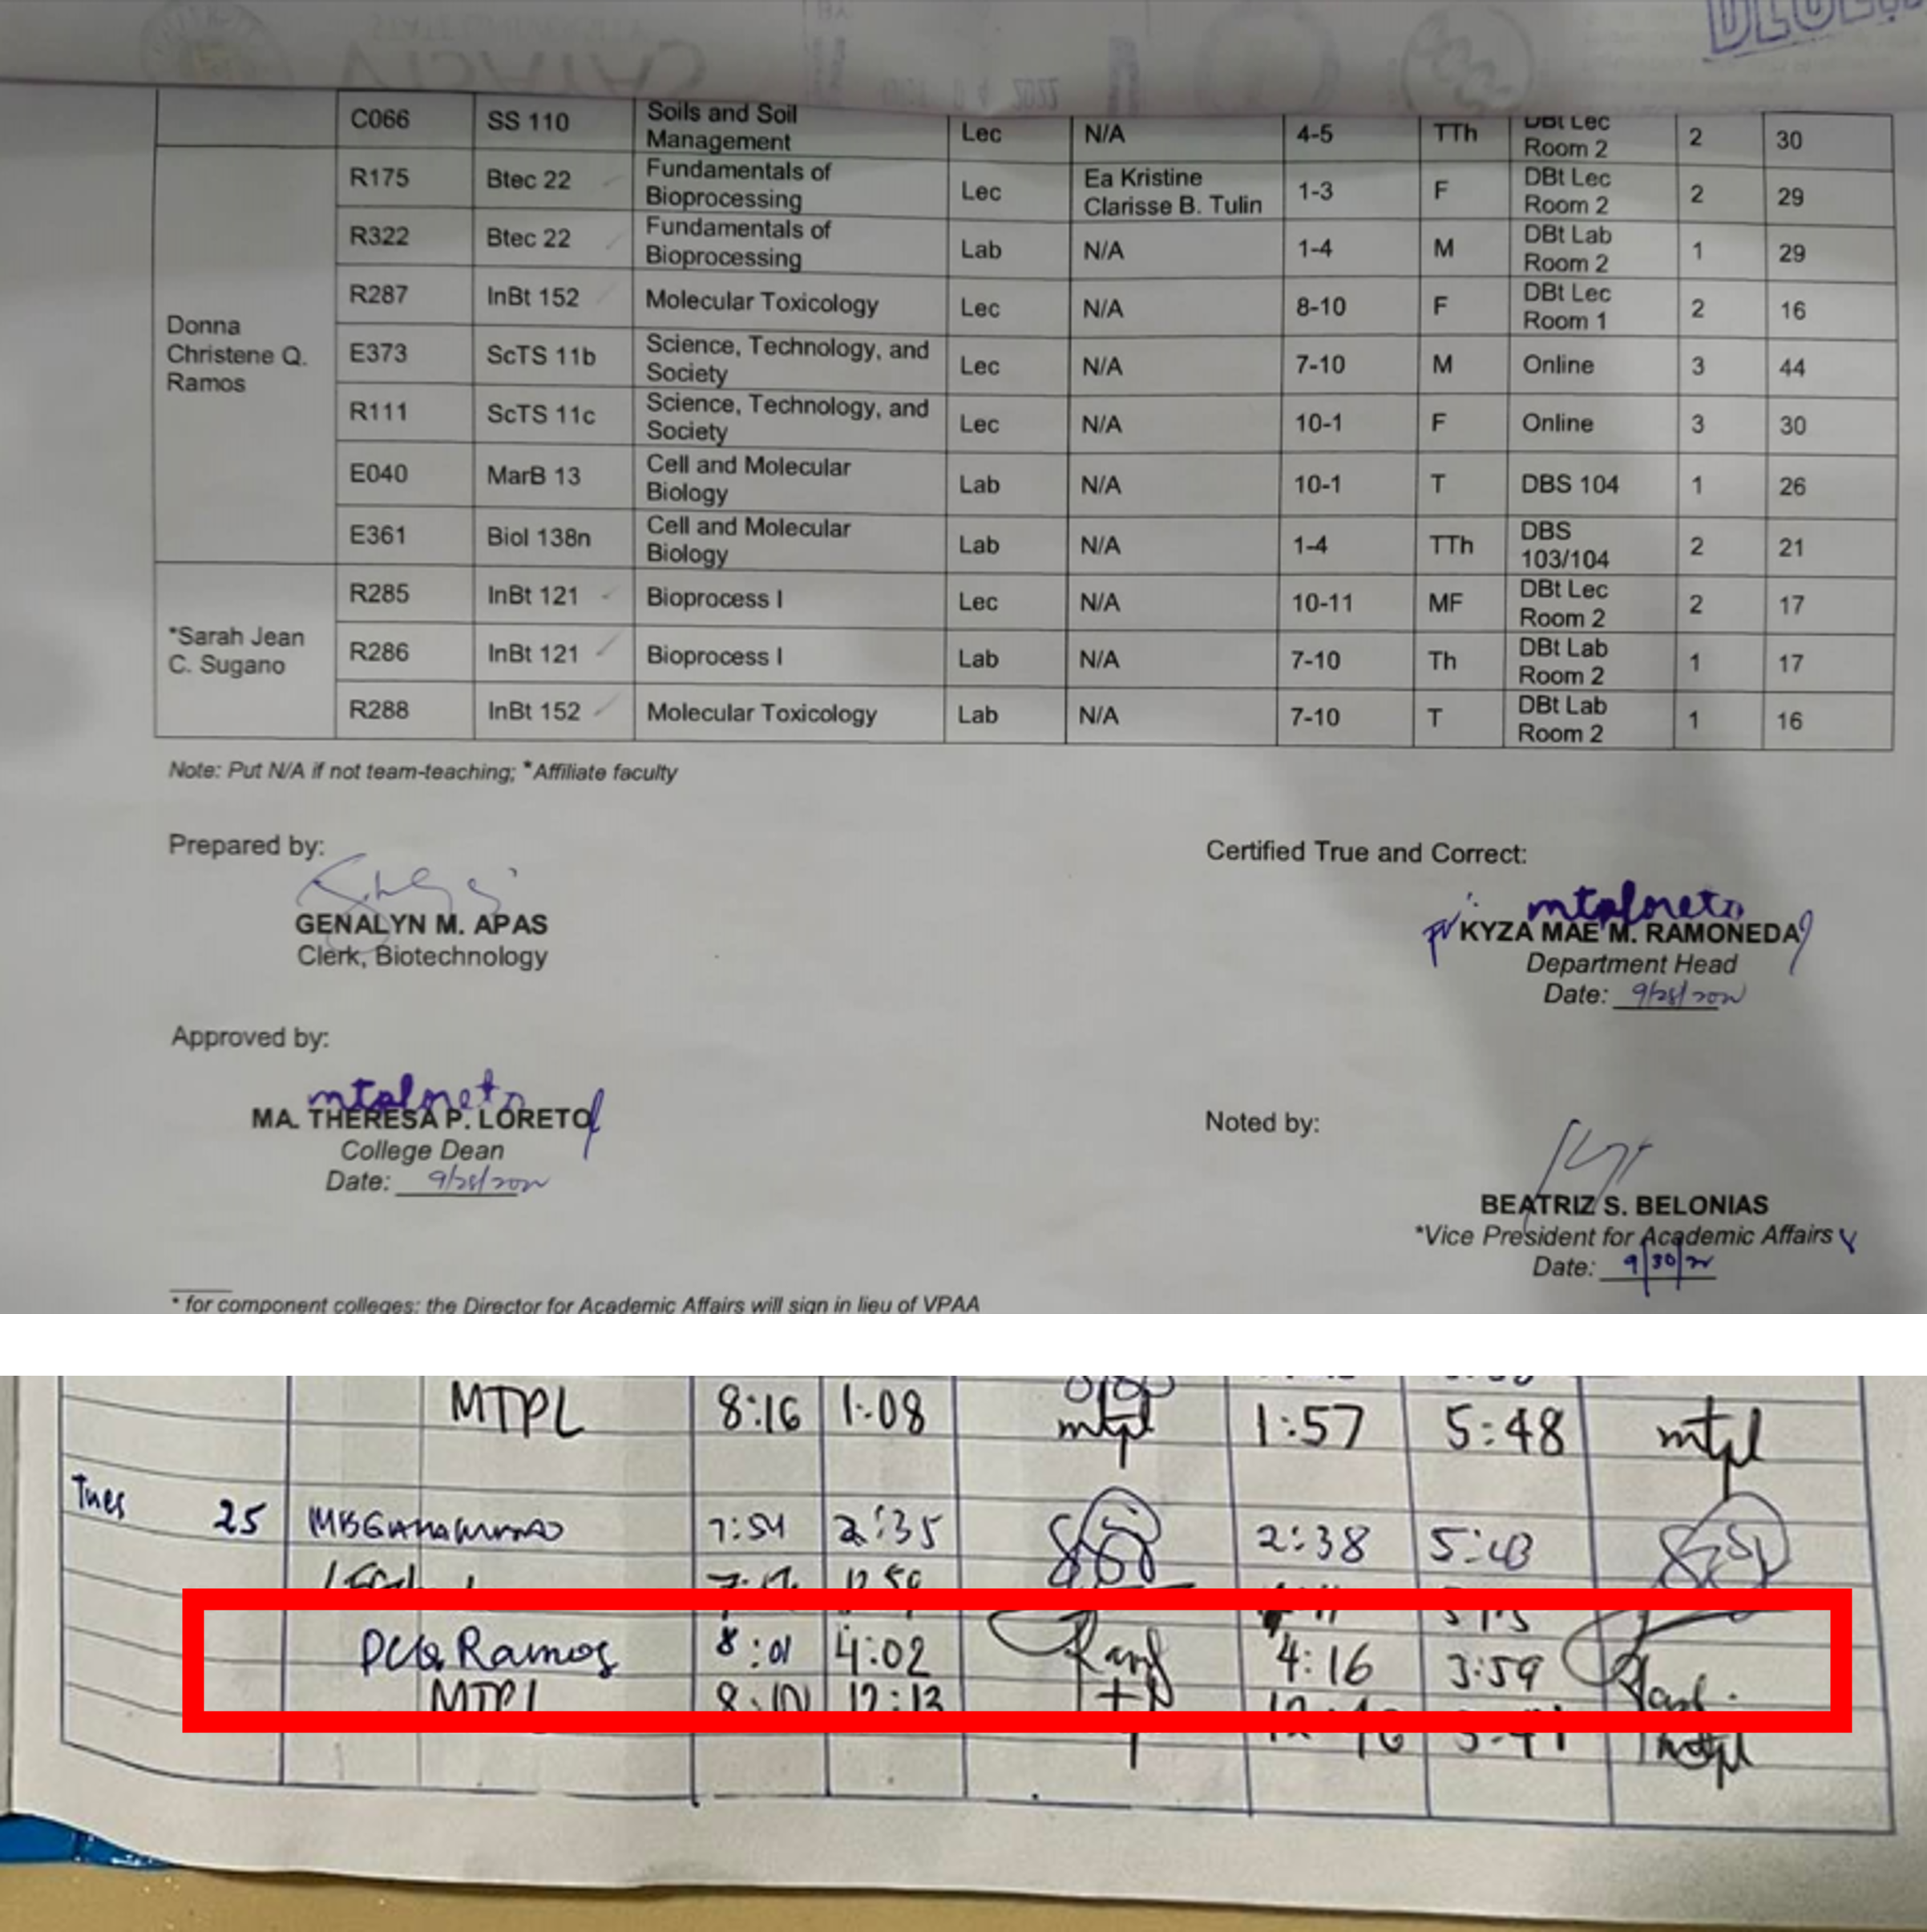 C066 SS 110 Soils and Soil Management Lec N/A 4-5 TTh DBt Lec Room 2 2 30
Donna Christene Q. Ramos
R175 Btec 22 Fundamentals of Bioprocessing Lec Ea Kristine Clarisse B. Tulin 1-3 F DBt Lec Room 2 2 29
R322 Btec 22 Fundamentals of Bioprocessing Lab N/A 1-4 M DBt Lab Room 2 1 29
R287 InBt 152 Molecular Toxicology Lec N/A 8-10 F DBt Lec Room 1 2 16
E373 ScTS 11b Science, Technology, and Society Lec N/A 7-10 M Online 3 44
R111 ScTS 11c Science, Technology, and Society Lec N/A 10-1 F Online 3 30
E040 MarB 13 Cell and Molecular Biology Lab N/A 10-1 T DBS 104 1 26
E361 Biol 138n Cell and Molecular Biology Lab N/A 1-4 TTh DBS 103/104 2 21
*Sarah Jean C. Sugano
R285 InBt 121 Bioprocess I Lec N/A 10-11 MF DBt Lec Room 2 2 17
R286 InBt 121 Bioprocess I Lab N/A 7-10 Th DBt Lab Room 2 1 17
R288 InBt 152 Molecular Toxicology Lab N/A 7-10 T DBt Lab Room 2 1 16
Note: Put N/A if not team-teaching; *Affiliate faculty
Prepared by:
GENALYN M. APAS
Clerk, Biotechnology
Certified True and Correct:
mtploreto
KYZA MAE M. RAMONEDA
Department Head
Date: 9/28/2022
Approved by:
mtploreto
MA. THERESA P. LORETO
College Dean
Date: 9/28/2022
Noted by:
BEATRIZ S. BELONIAS
*Vice President for Academic Affairs
Date: 9/30/22
* for component colleges; the Director for Academic Affairs will sign in lieu of VPAA
MTPL 8:16 1:08 mtpl 1:57 5:48 mtpl
Tues 25 7:54 2:35 2:38 5:43
DCQ Ramos 8:01 4:02 4:16 3:59
MTPL 12:13 mtpl